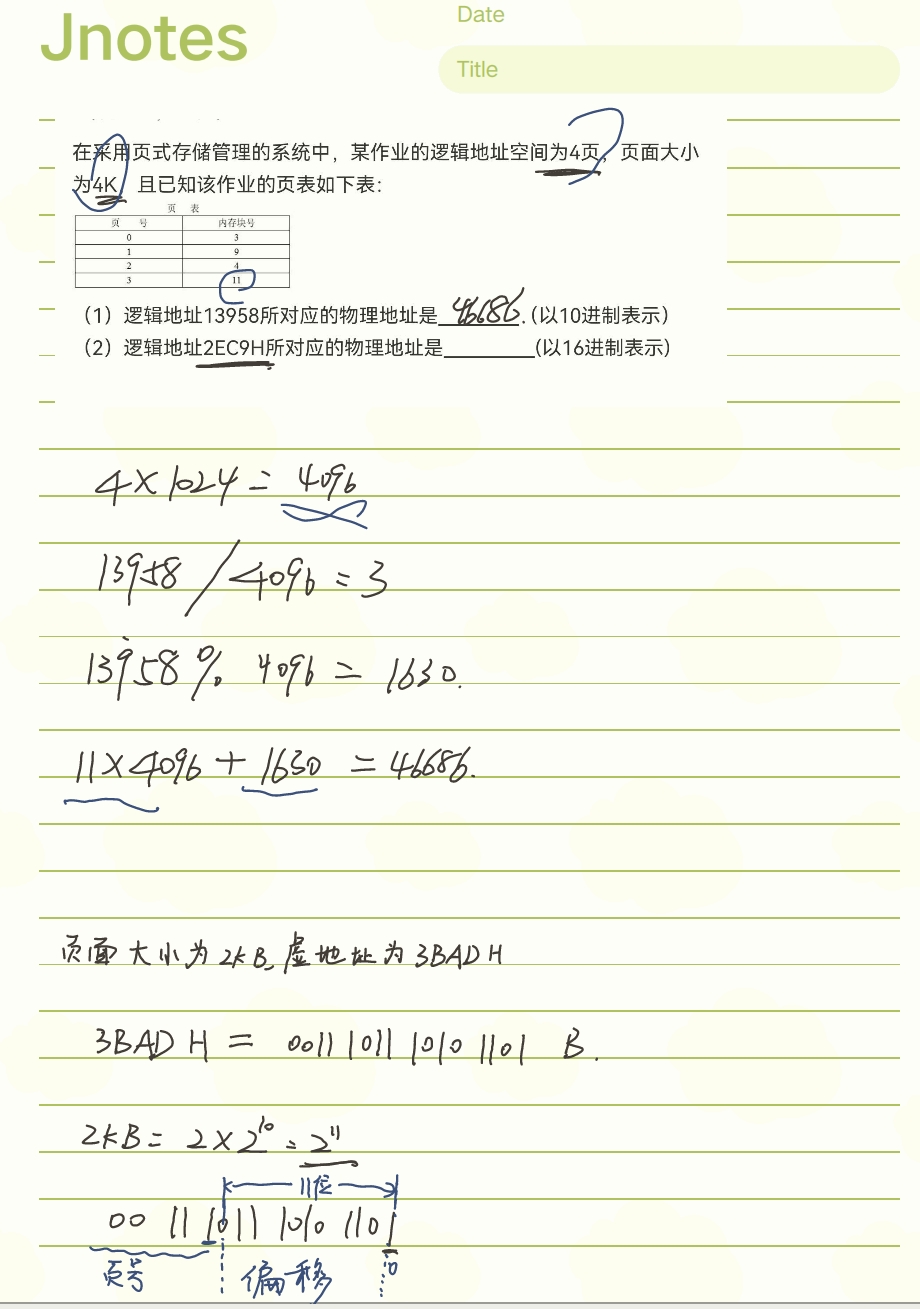 Jnotes
Date
Title
在采用页式存储管理的系统中，某作业的逻辑地址空间为4页，页面大小
为4K 且已知该作业的页表如下表：
页 表
页 号 内存块号
0 3
1 9
2 4
3 11
（1）逻辑地址13958所对应的物理地址是 46686.（以10进制表示）
（2）逻辑地址2EC9H所对应的物理地址是________(以16进制表示)
4×1024 = 4096
13958 / 4096 = 3
13958 % 4096 = 1630.
11×4096 + 1630 = 46686.
页面大小为2KB、虚地址为3BADH
3BADH = 0011 1011 1010 1101 B.
2KB = 2×2^10 = 2^11
11位
00 11 1011 1010 1101
页号 偏移 0